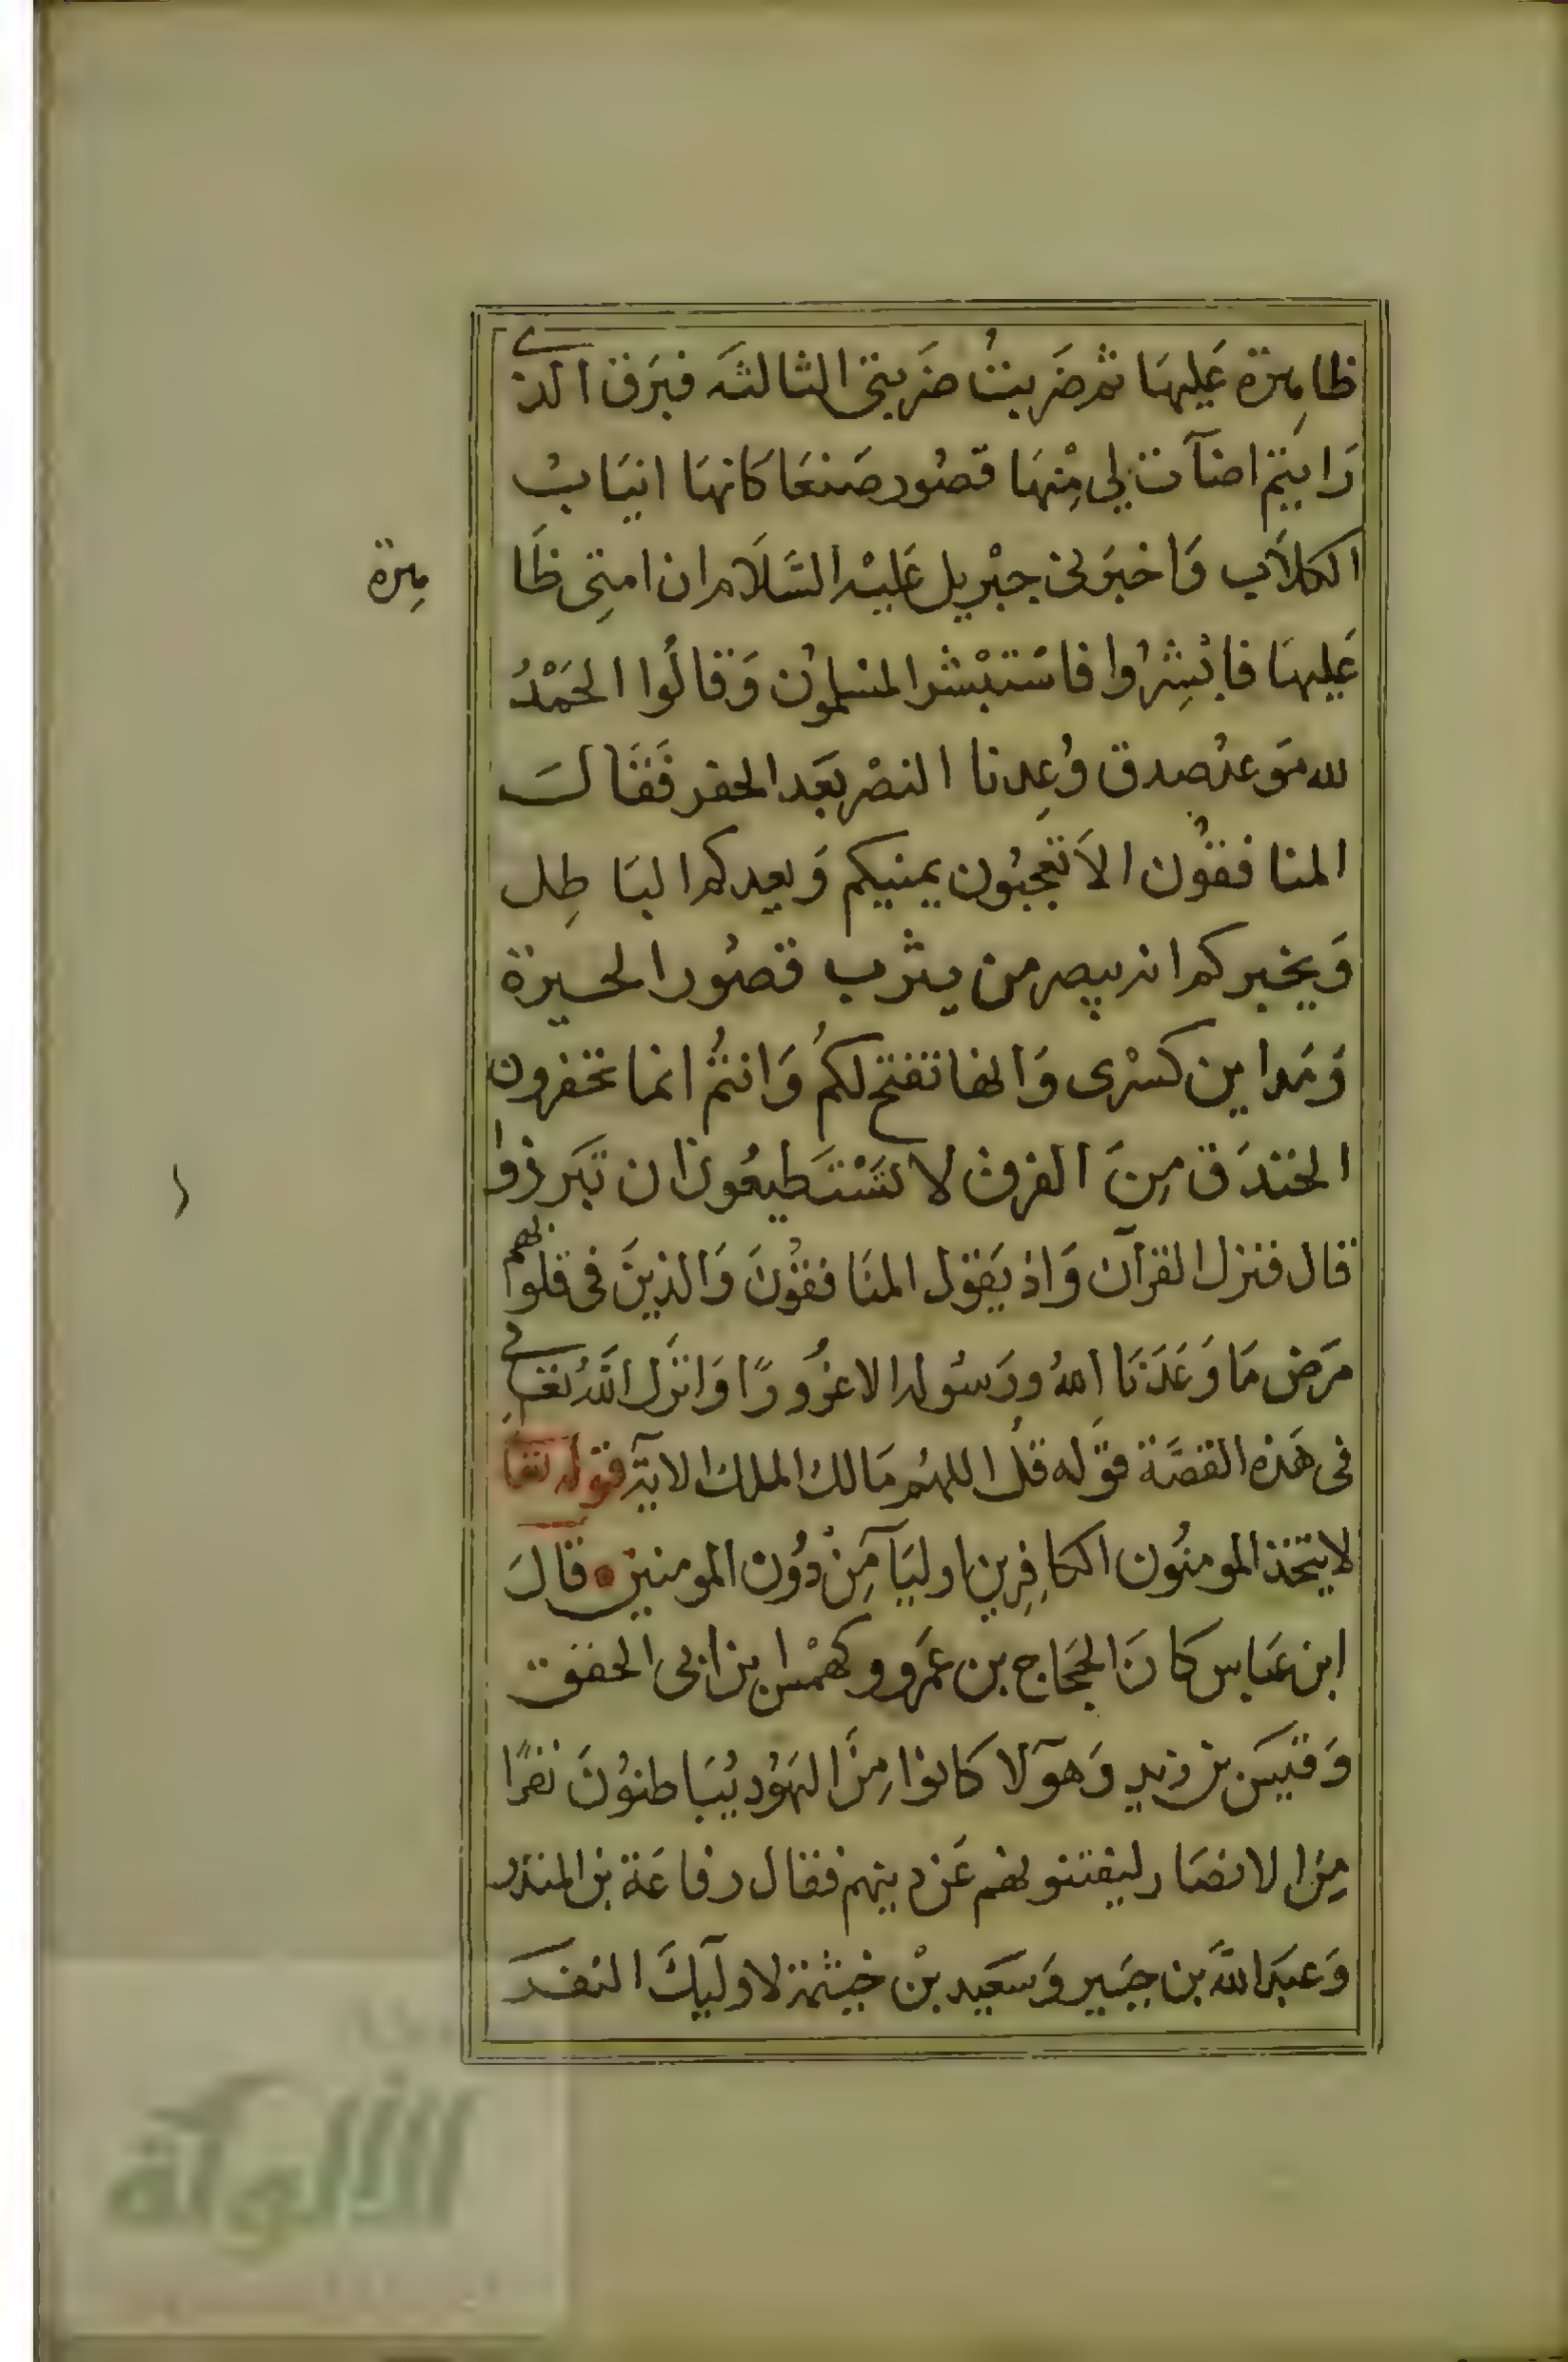 ظاهِرة عَليهَا ثم ضَربتُ ضَربتى الثالثَه فبَرق الذي
رَايتم اضآت لى مِنْهَا قصُور صَنعَا كَانهَا انيَابُ
الكلاَب وَاخبَرنى جبْريل عَليْه السَّلاَم ان امتِى ظَا هرة
عَليهَا فابْشِرُوا فاسْتبْشر المسْلموُن وَقالُوا الحَمْدُ
لله مَوعدُ صدق وُعِدنا النصْر بَعَد الحفر فَقَالَـ
المنافقوُن الاَ تعجبُون يمنيكم وَيعدكم البَاطِل
وَيخبركم انه يبصر من يثرب قصُور الحـيرة
وَمَداين كسْرى وَانها تفتح لكُم وَانتُم انما تحفرون
الخندَق مِنَ الفرق لا تَسْتَطيعُون ان تبَرزوا
قال فنزل القرآن وَاذ يَقول المنَافقوُنَ وَالذينَ فى قلوبهم
مَرَض مَا وَعَدَنَا اللهُ ورَسُوله الا غرُورًا وَانزَل اللهُ تعالى
فى هَذه القصَّة قوَله قل اللهُم مَالك الملك الايَة قوله تعا
لا يتخذ المومنوُن الكافِرِين اوليَآ مِنْ دوُن المومنين قَالَ
ابن عَباس كَانَ الحجَاج بن عمَرو وكهمْس ابن ابى الحقيق
وَقيَس بن زيد وَهوَلا كانوا مِنَ اليهَوُد يُبَاطنوُنَ نفرًا
مِنَ الانصَار ليفتنوهم عَن دينهم فقال رفاعَة بن المنذر
وَعبَد اللهَ بن جبَير وَسَعَيد بْن خيثمة لاوليكَ النفـَر